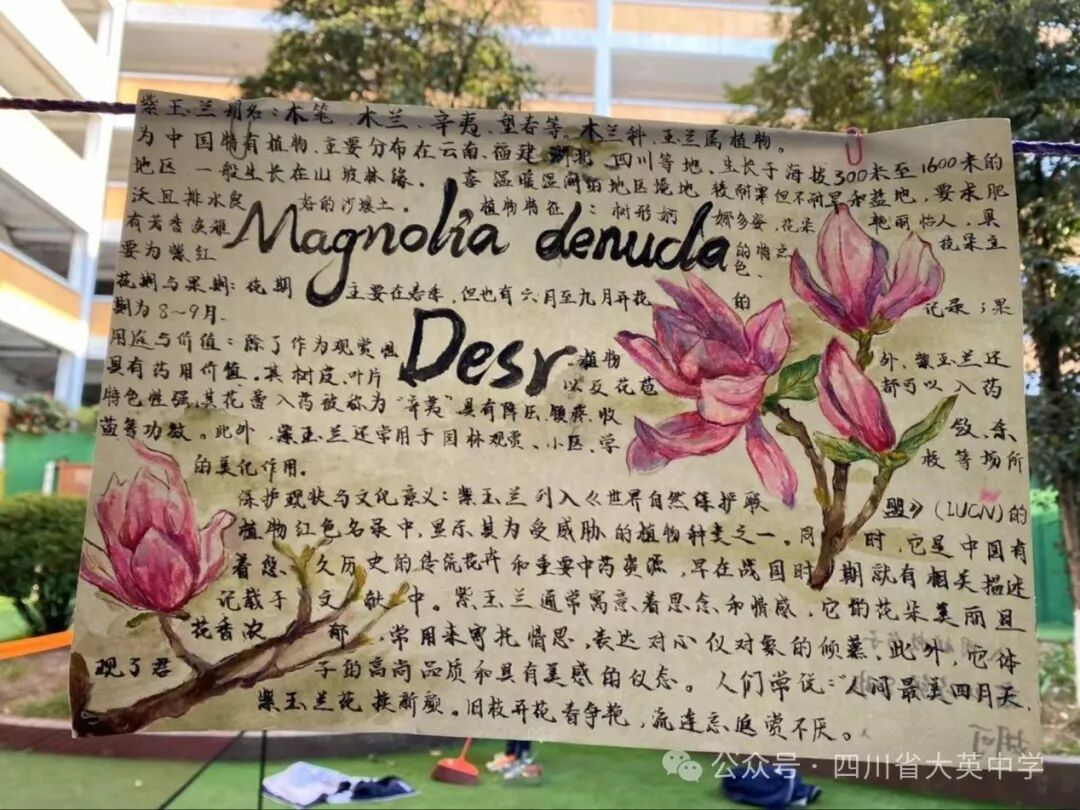 紫玉兰别名：木笔 木兰、辛夷、望春等。木兰科、玉兰属植物。
为中国特有植物，主要分布在云南、福建、湖北、四川等地，生长于海拔300米至1600米的
地区，一般生长在山坡林缘。喜温暖湿润的地区境地，较耐寒但不耐旱和盐地，要求肥
沃且排水良好的沙壤土。 植物特征：树形婀娜多姿，花朵艳丽怡人，具
有芳香淡雅的特点 花朵主
要为紫红色、
Magnolia denuda
花期与果期：花期主要在春季，但也有六月至九月开花的记录；果
期为8~9月、
Desr
用途与价值：除了作为观赏性植物外，紫玉兰还
具有药用价值。其树皮、叶片以及花苞都可以入药
特色性强，其花蕾入药被称为“辛夷”具有降压、镇痛、收敛、杀
菌等功效。此外，紫玉兰还常用于园林观赏、小区、学校等场所
的美化作用。
保护现状与文化意义：紫玉兰列入《世界自然保护联盟》(IUCN)的
植物红色名录中，显示其为受威胁的植物种类之一。同时，它是中国有
着悠久历史的传统花卉和重要中药资源，早在战国时期就有相关描述
记载于文献中。紫玉兰通常寓意着思念和情感，它的花朵美丽且
花香浓郁，常用来寄托情思，表达对心仪对象的倾慕，此外，它体
现了君子的高尚品质和具有美感的仪态。人们常说：“人间最美四月天，
紫玉兰花换新颜。旧枝开花春争艳，流连忘返赏不厌。
公众号·四川省大英中学